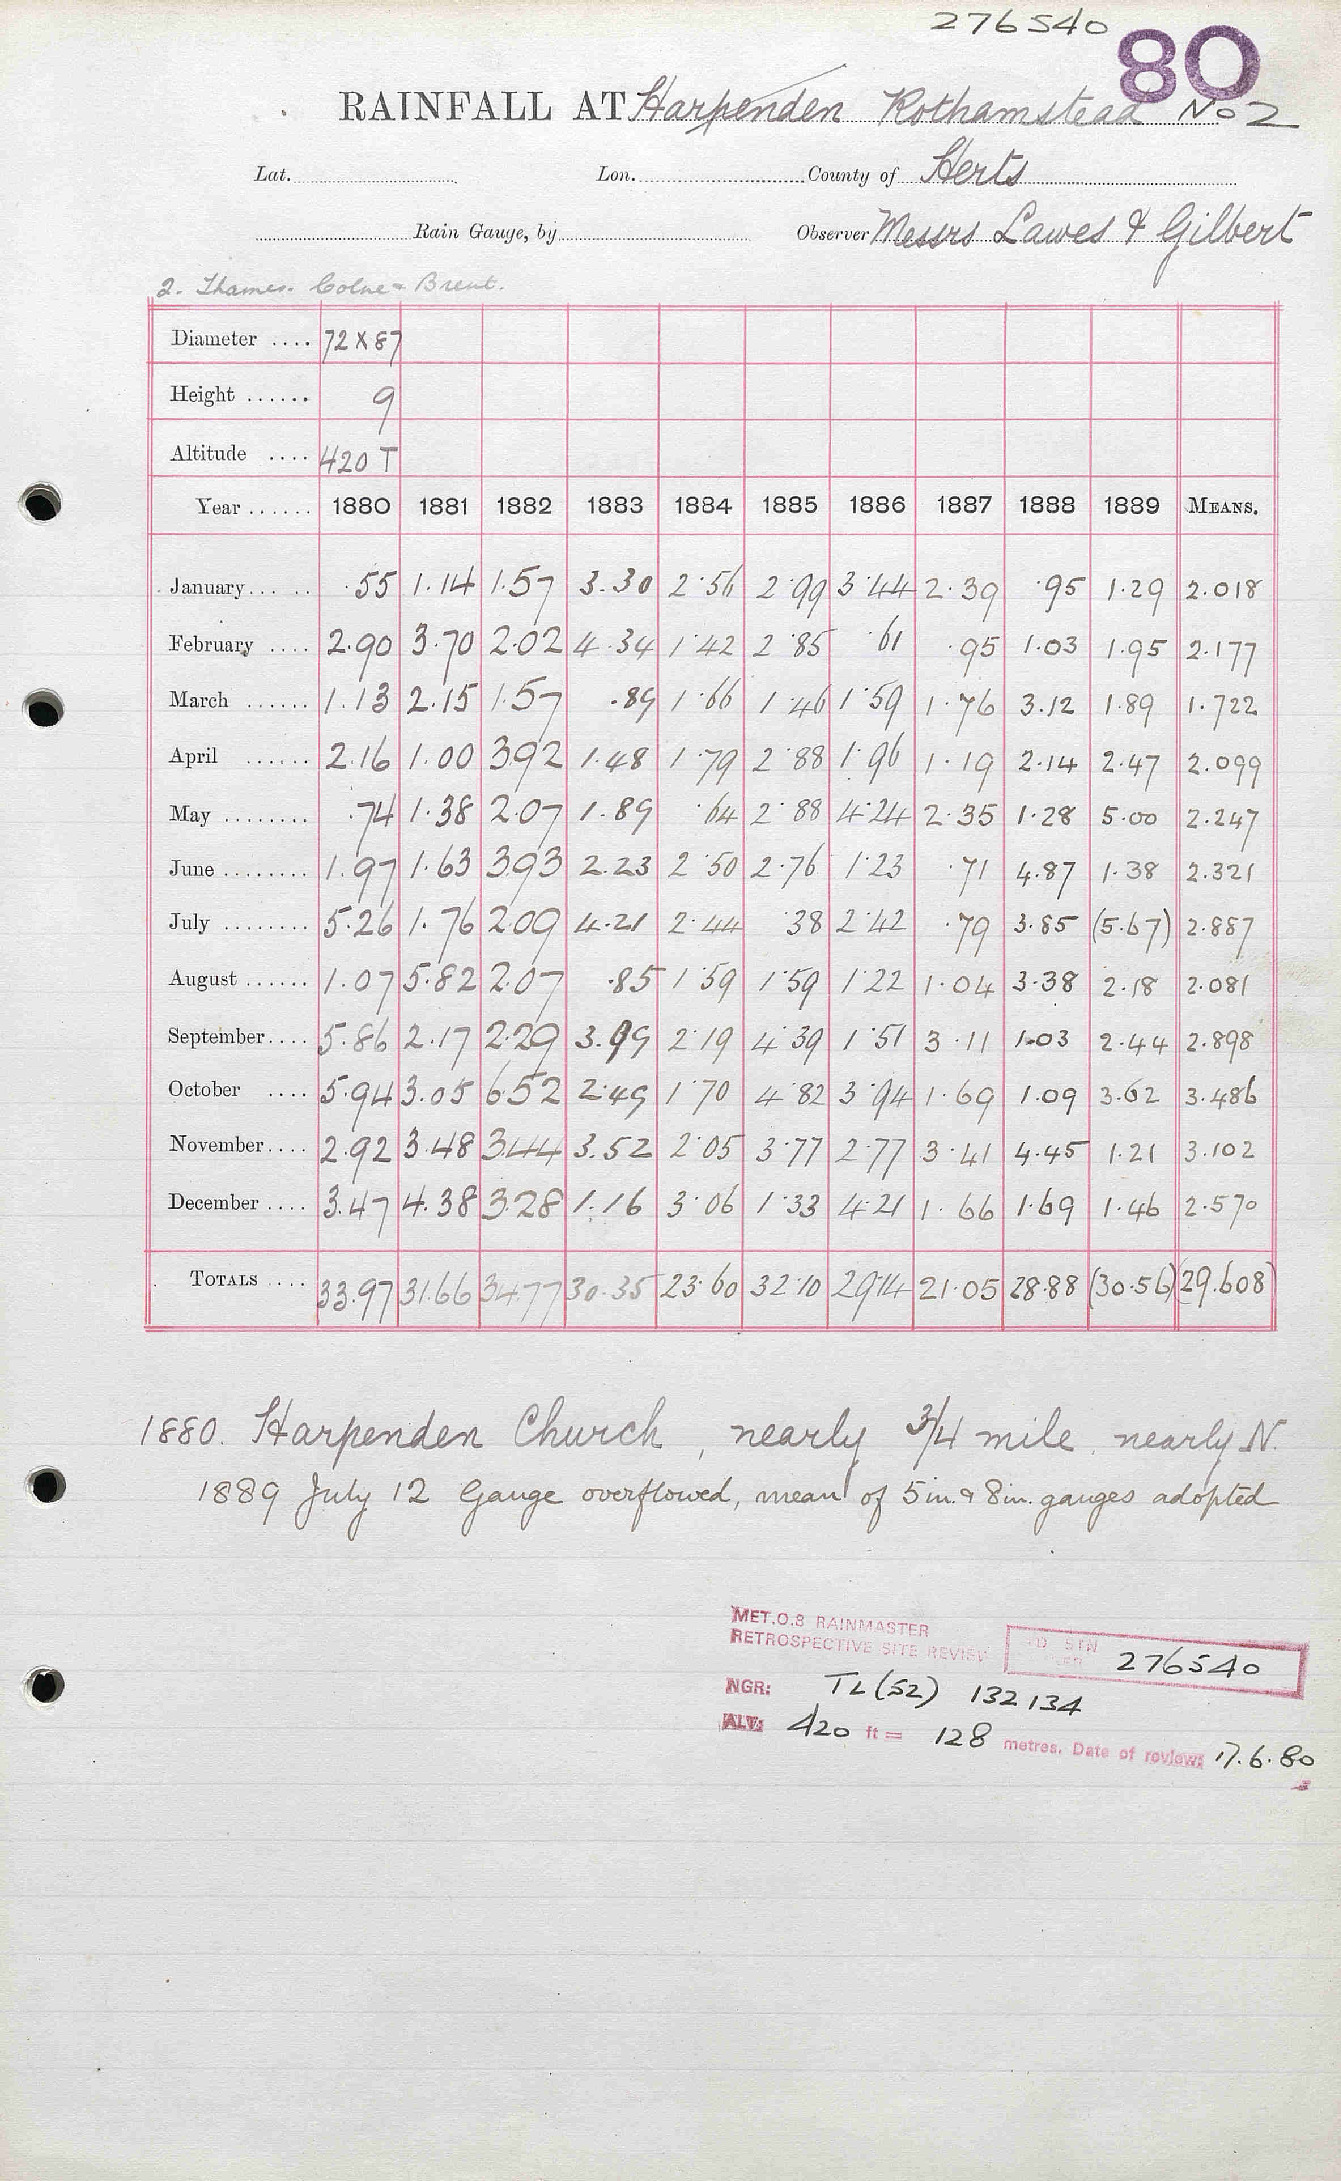 276540
80
RAINFALL AT Harpenden Rothamstead No 2
Lat. Lon. County of Herts
Rain Gauge, by Observer Messrs Lawes & Gilbert
2. Thames. Colne & Brent.
Diameter .... 72 X 87
Height ...... 9
Altitude .... 420 T
Year ...... 1880 1881 1882 1883 1884 1885 1886 1887 1888 1889 MEANS.
January ..... .55 1.14 1.57 3.30 2.56 2.99 3.44 2.39 .95 1.29 2.018
February .... 2.90 3.70 2.02 4.34 1.42 2.85 .61 .95 1.03 1.95 2.177
March ...... 1.13 2.15 1.57 .89 1.66 1.46 1.59 1.76 3.12 1.89 1.722
April ...... 2.16 1.00 3.92 1.48 1.79 2.88 1.96 1.19 2.14 2.47 2.099
May ........ .74 1.38 2.07 1.89 .64 2.88 4.24 2.35 1.28 5.00 2.247
June ........ 1.97 1.63 3.93 2.23 2.50 2.76 1.23 .71 4.87 1.38 2.321
July ........ 5.26 1.76 2.09 4.21 2.44 .38 2.42 .79 3.85 (5.67) 2.887
August ...... 1.07 5.82 2.07 .85 1.59 1.59 1.22 1.04 3.38 2.18 2.081
September .... 5.86 2.17 2.29 3.99 2.19 4.39 1.51 3.11 1.03 2.44 2.898
October .... 5.94 3.05 6.52 2.49 1.70 4.82 3.94 1.69 1.09 3.62 3.486
November .... 2.92 3.48 3.44 3.52 2.05 3.77 2.77 3.41 4.45 1.21 3.102
December .... 3.47 4.38 3.28 1.16 3.06 1.33 4.21 1.66 1.69 1.46 2.570
TOTALS .... 33.97 31.66 34.77 30.35 23.60 32.10 29.14 21.05 28.88 (30.56) (29.608)
1880. Harpenden Church, nearly 3/4 mile, nearly N.
1889 July 12 Gauge overflowed, mean of 5in. & 8in. gauges adopted
MET.O.8 RAINMASTER
RETROSPECTIVE SITE REVIEW STN 276540
NGR: TL(52) 132134
ALT: 420 ft = 128 metres. Date of review: 17.6.80